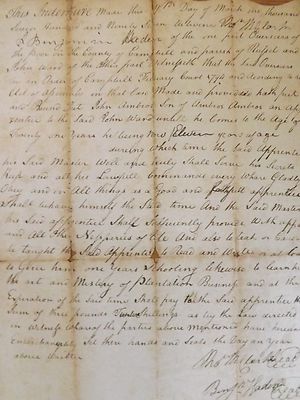 This Indenture Made this 19th Day of March one thousand
Seven Hundred and Ninety Seven between Thos Watson
& Benjamin Haden of the one part Overseers of
the Poor in the County of Campbell and parish of Russel and
John Ward of the other part Witnesseth that the said Oversers
in Order of Campbell February Court 1797 and
Act of Assembly in that Case Made and provided hath put
and Bound Out John Ambros Son of Ambros an
to the said John Ward untill he Comes to the Age of
Twenty one years he being Now Eleven years of age
during which time the Said Apprentice
his Said Master Well and truly Shall Serve his Secrets
Keep and all his Lawfull Commands every where Gladly
Obey and in All things as a Good and faithfull apprentice
Shall behave himself the Said time And the Said Master
his Said apprentice Shall Sufficiently provide With
and All the Necessaries of life And also to teach or Cause
to be taught the Said Apprentice to Read and Write or at
to Give him one years Schooling likewise to learn
the art and Mistery of Plantation Business and at the
Expiration of the Said time Shall pay to the Said apprentice the
Sum of three pounds Shillings as by the Law directed
in witness Whereof the parties above Mentioned have
Set their hands and Seals the Day an Year
above written
Seal
Benjn Haden Seal